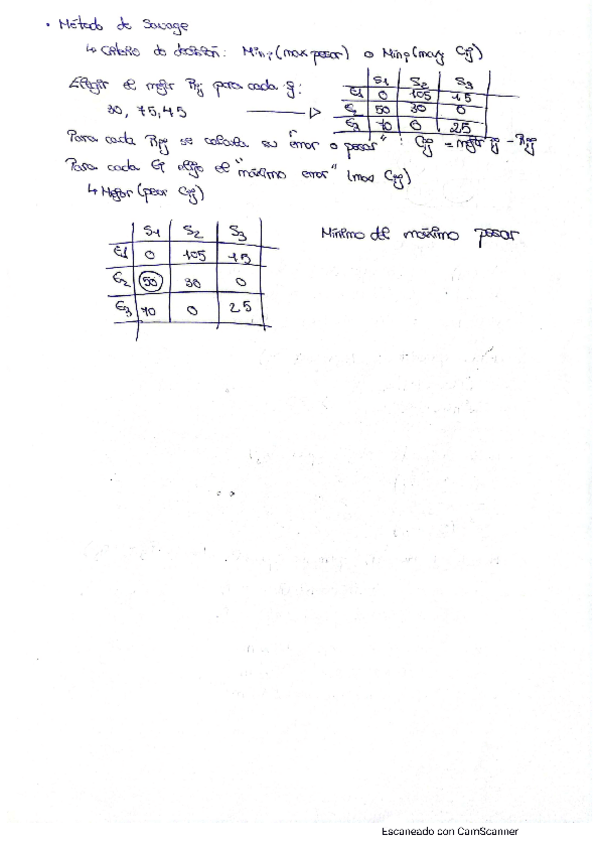 • Método de Savage
↳ Criterio de decisión: Mini (max pesar) o Mini (maxj Cij)
Elegir el mejor Rij para cada j:
30, 75, 45 ⟶
S1 S2 S3
E1 0 105 15
E2 50 30 0
E3 70 0 25
Para cada Rij se calcula su "error o pesar": Cij = mejor ij - Rij
Para cada Ei elijo el "máximo error" (max Cij)
↳ Mejor (peor Cij)
S1 S2 S3
E1 0 105 15
E2 50 30 0
E3 70 0 25
Mínimo del máximo pesar
Escaneado con CamScanner